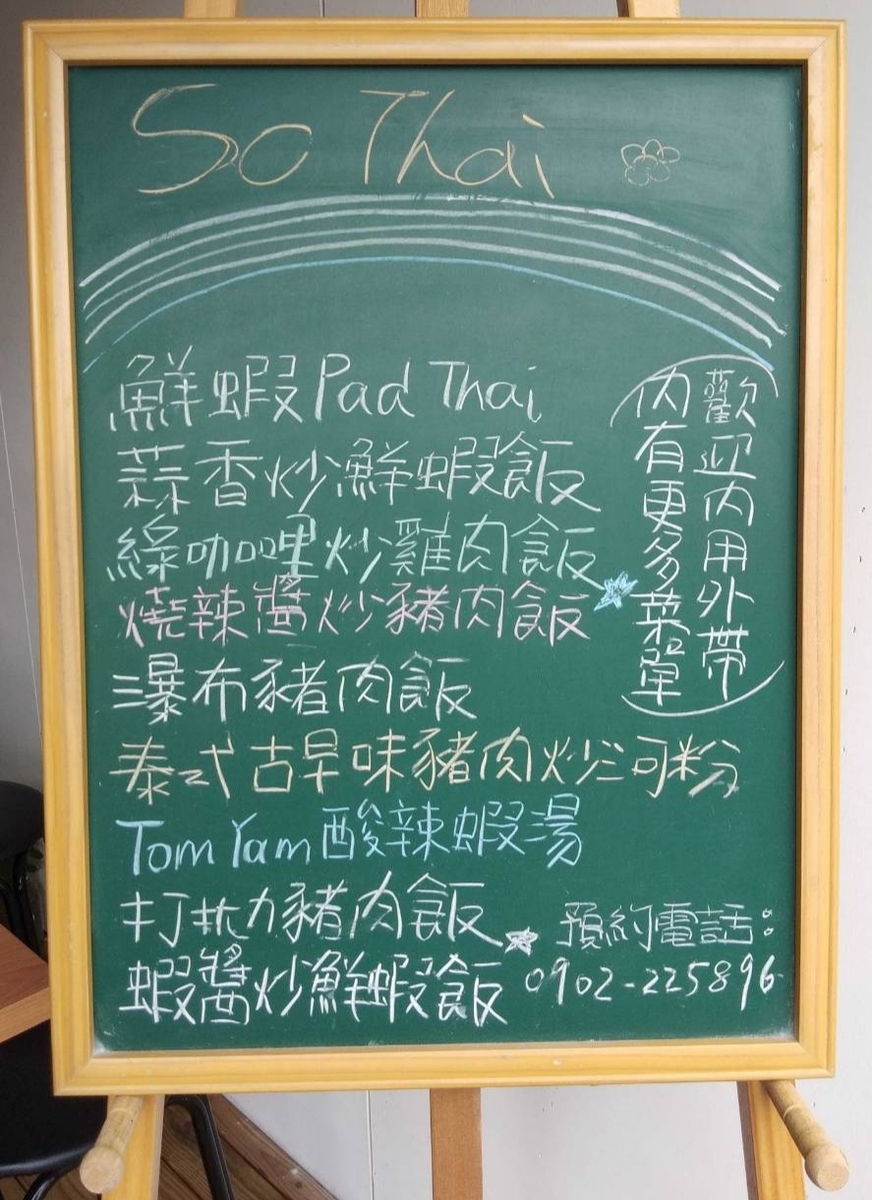 So Thai
鮮蝦Pad Thai
蒜香炒鮮蝦飯
綠咖哩炒雞肉飯
燒辣醬炒豬肉飯
瀑布豬肉飯
泰式古早味豬肉炒河粉
Tom Yam酸辣蝦湯
打拋豬肉飯
蝦醬炒鮮蝦飯
歡迎內用外帶
內有更多菜單
預約電話:
0902-225896